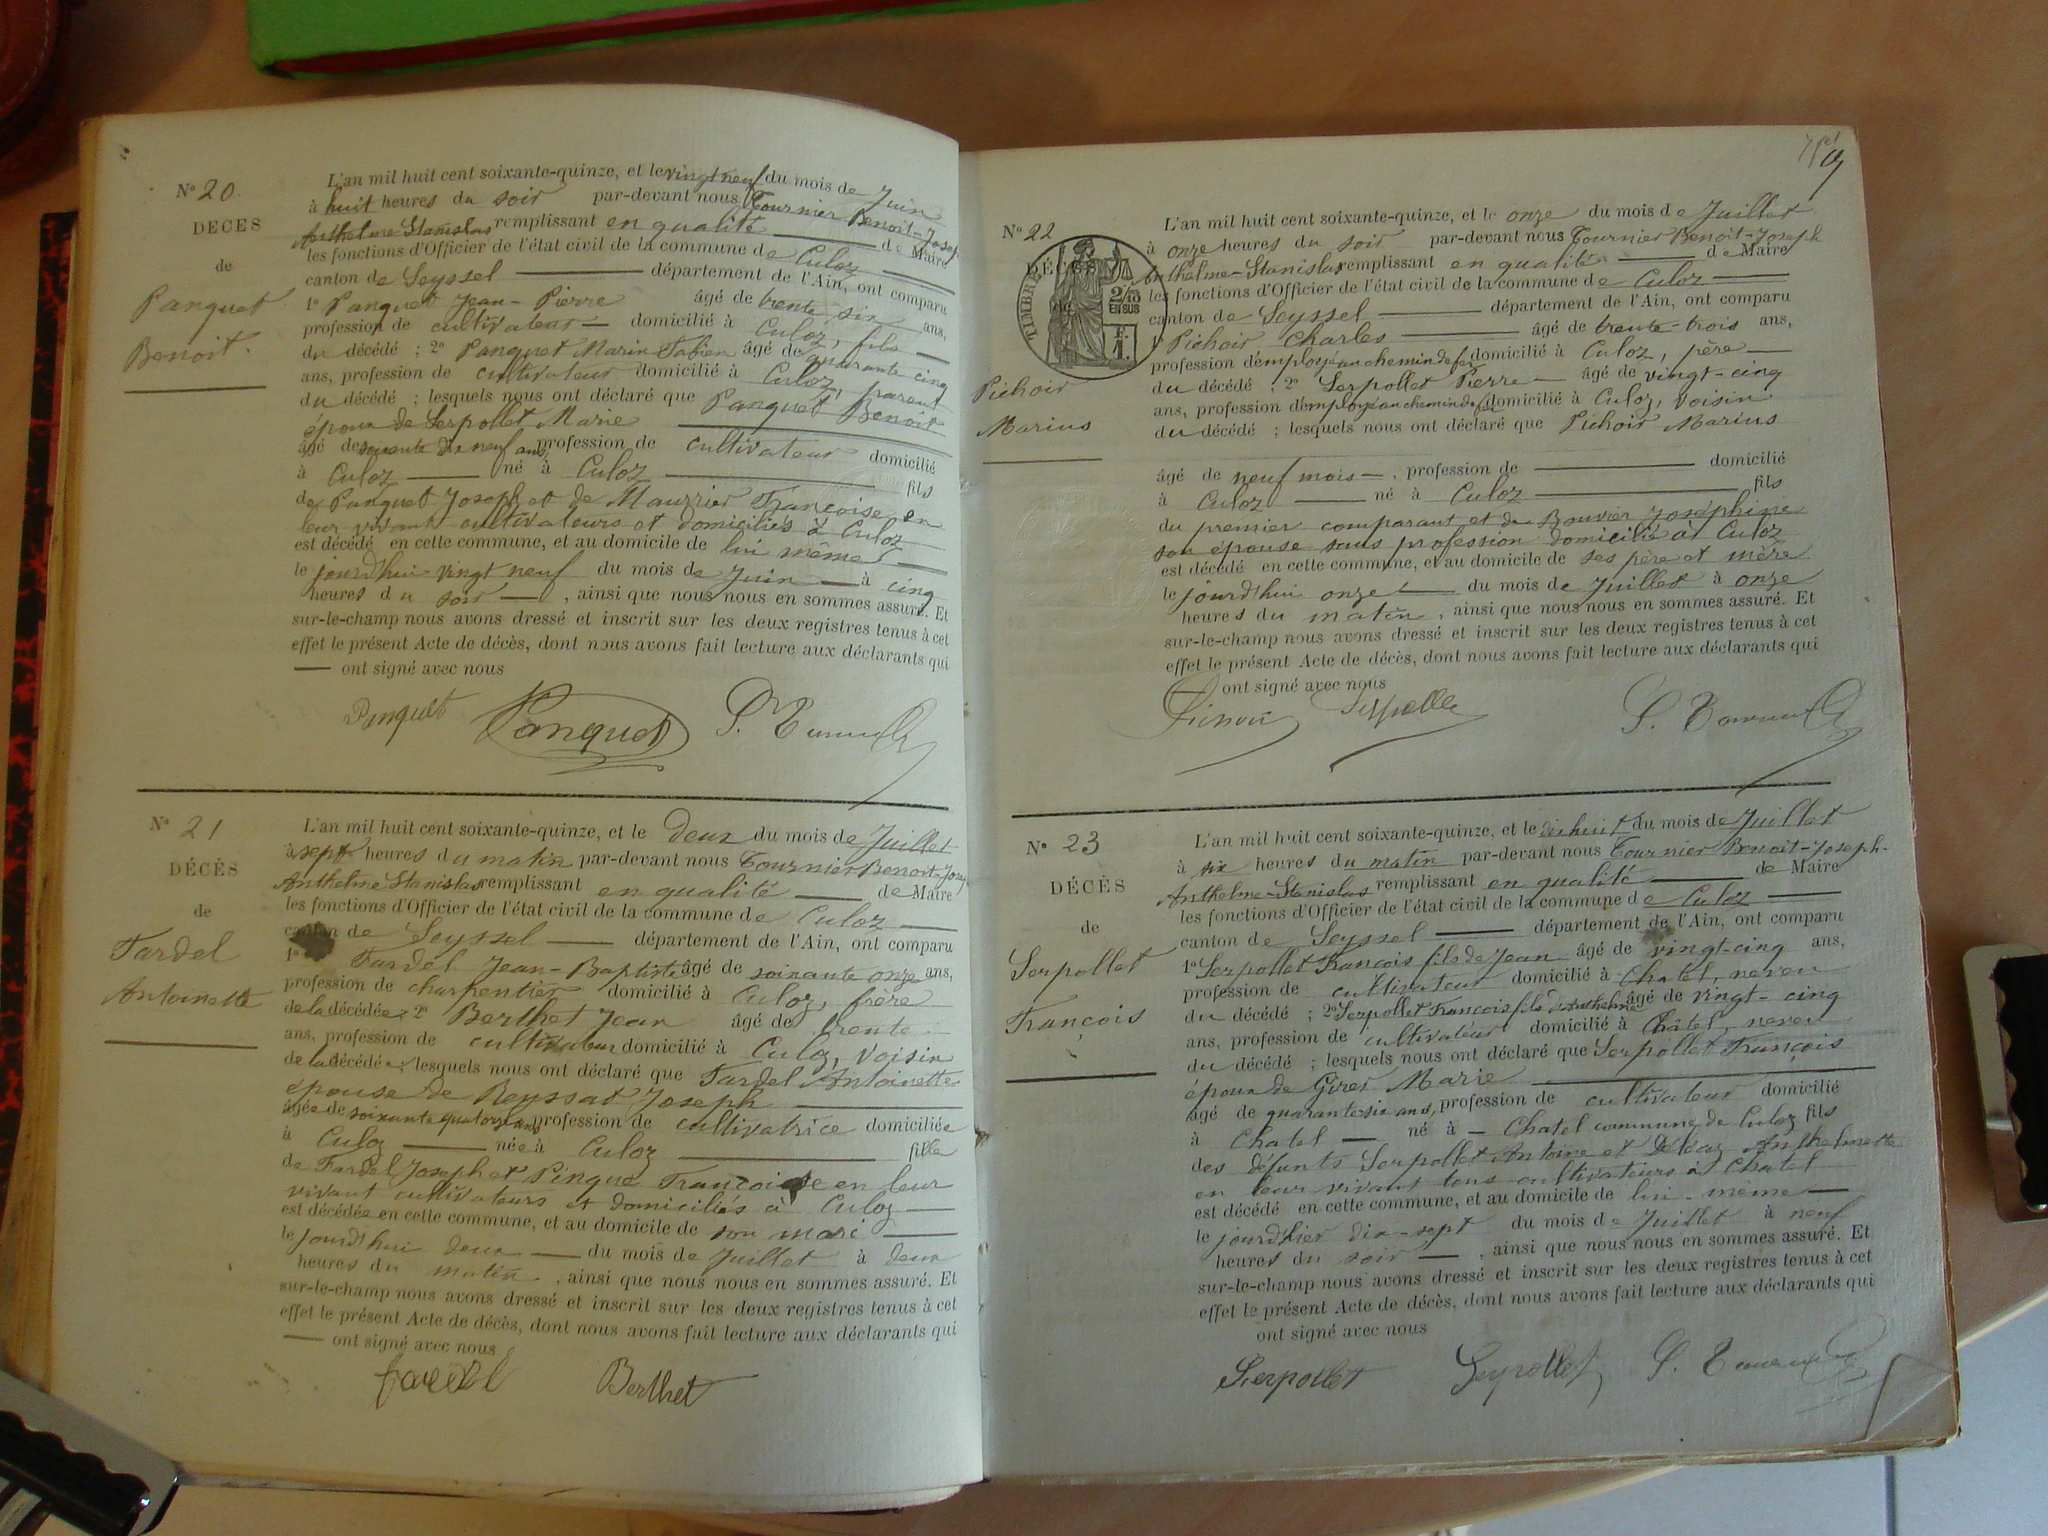 N° 20
DÉCÈS
de
Panquet
Benoit.
L'an mil huit cent soixante-quinze, et le vingt neuf du mois de Juin
à huit heures du soir par-devant nous Tournier Benoit-Joseph
Anthelme Stanislas remplissant en qualité de Maire
les fonctions d'Officier de l'état civil de la commune de Culoz
canton de Seyssel département de l'Ain, ont comparu
1° Panquet Jean-Pierre âgé de trente six ans,
profession de cultivateur domicilié à Culoz, fils
du décédé ; 2° Panquet Marin Fabien âgé de quarante cinq
ans, profession de cultivateur domicilié à Culoz, parent
du décédé ; lesquels nous ont déclaré que Panquet Benoit
époux de Serpollet Marie
âgé de soixante dix neuf ans, profession de cultivateur domicilié
à Culoz né à Culoz fils
de Panquet Joseph et de Maurrier Françoise, en
leur vivant cultivateurs et domiciliés à Culoz
est décédé en cette commune, et au domicile de lui même
le jourd'hui vingt neuf du mois de Juin à cinq
heures du soir , ainsi que nous nous en sommes assuré. Et
sur-le-champ nous avons dressé et inscrit sur les deux registres tenus à cet
effet le présent Acte de décès, dont nous avons fait lecture aux déclarants qui
ont signé avec nous
Panquet Panquet
N° 21
DÉCÈS
de
Tardel
Antoinette
L'an mil huit cent soixante-quinze, et le deux du mois de Juillet
à sept heures du matin par-devant nous Tournier Benoit-Josep
Anthelme Stanislas remplissant en qualité de Maire
les fonctions d'Officier de l'état civil de la commune de Culoz
canton de Seyssel département de l'Ain, ont comparu
1° Tardel Jean-Baptiste âgé de soixante onze ans,
profession de charpentier domicilié à Culoz, frère
de la décédée 2° Berthet Jean âgé de trente
ans, profession de cultivateur domicilié à Culoz, voisin
de la décédée, lesquels nous ont déclaré que Tardel Antoinette
épouse de Reyssat Joseph
âgée de soixante quatorze ans profession de cultivatrice domiciliée
à Culoz née à Culoz fille
de Tardel Joseph et Pingue Françoise en leur
vivant cultivateurs et domiciliés à Culoz
est décédée en cette commune, et au domicile de son mari
le jourd'hui deux du mois de Juillet à deux
heures du matin , ainsi que nous nous en sommes assuré. Et
sur-le-champ nous avons dressé et inscrit sur les deux registres tenus à cet
effet le présent Acte de décès, dont nous avons fait lecture aux déclarants qui
ont signé avec nous
Berthet
N° 22
DÉCÈS
de
TIMBRE
2/10
EN SUS
F.
1.
Pichoir
Marius
L'an mil huit cent soixante-quinze, et le onze du mois de Juillet
à onze heures du soir par-devant nous Tournier Benoit-Joseph
Anthelme-Stanislas remplissant en qualité de Maire
les fonctions d'Officier de l'état civil de la commune de Culoz
canton de Seyssel département de l'Ain, ont comparu
1° Pichoir Charles âgé de trente-trois ans,
profession d'employé au chemin de fer domicilié à Culoz, père
du décédé ; 2° Serpollet Pierre âgé de vingt-cinq
ans, profession d'employé au chemin de fer domicilié à Culoz, voisin
du décédé ; lesquels nous ont déclaré que Pichoir Marius
âgé de neuf mois , profession de domicilié
à Culoz né à Culoz fils
du premier comparant et de Bouvier Joséphine
son épouse sans profession domiciliés à Culoz
est décédé en cette commune, et au domicile de ses père et mère
le jourd'hui onze du mois de Juillet à onze
heures du matin , ainsi que nous nous en sommes assuré. Et
sur-le-champ nous avons dressé et inscrit sur les deux registres tenus à cet
effet le présent Acte de décès, dont nous avons fait lecture aux déclarants qui
ont signé avec nous
N° 23
DÉCÈS
de
Serpollet
François
L'an mil huit cent soixante-quinze, et le dix huit du mois de Juillet
à six heures du matin par-devant nous Tournier Benoit-Joseph-
Anthelme-Stanislas remplissant en qualité de Maire
les fonctions d'Officier de l'état civil de la commune de Culoz
canton de Seyssel département de l'Ain, ont comparu
1° Serpollet François fils de Jean âgé de vingt-cinq ans,
profession de cultivateur domicilié à Chatel, neveu
du décédé ; 2° Serpollet François fils d'Anthelme âgé de vingt-cinq
ans, profession de cultivateur domicilié à Châtel, neveu
du décédé ; lesquels nous ont déclaré que Serpollet François
époux de Girer Marie
âgé de quarante six ans, profession de cultivateur domicilié
à Chatel né à Chatel commune de Culoz fils
des défunts Serpollet Antoine et Anthelmette
en leur vivant tous cultivateurs à Chatel
est décédé en cette commune, et au domicile de lui-même
le jourd'hier dix-sept du mois de Juillet à neuf
heures du soir , ainsi que nous nous en sommes assuré. Et
sur-le-champ nous avons dressé et inscrit sur les deux registres tenus à cet
effet le présent Acte de décès, dont nous avons fait lecture aux déclarants qui
ont signé avec nous
Serpollet Serpollet